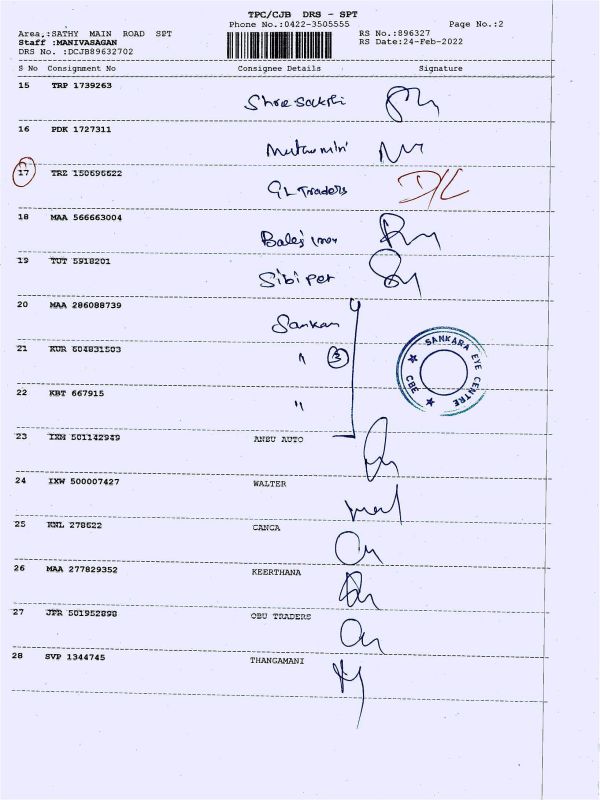 TPC/CJB DRS - SPT
Phone No.:0422-3505555 Page No.:2
Area,:SATHY MAIN ROAD SPT RS No.:896327
Staff :MANIVASAGAN RS Date:24-Feb-2022
DRS No. :DCJB89632702
S No Consignment No Consignee Details Signature
15 TRP 1739263
Shree Sakthi
16 PDK 1727311
17 TRZ 150696622
GL Traders
18 MAA 566663004
Balaji
19 TUT 5918201
Sibi
20 MAA 286088739
Sankara
21 KUR 604831503
" 3
SANKARA EYE CENTRE
CBE
22 KBT 667915
"
23 IXM 501142949 ANBU AUTO
24 IXW 500007427 WALTER
25 KNL 278622 CANCA
26 MAA 277829352 KEERTHANA
27 JPR 501952898 OBU TRADERS
28 SVP 1344745 THANGAMANI